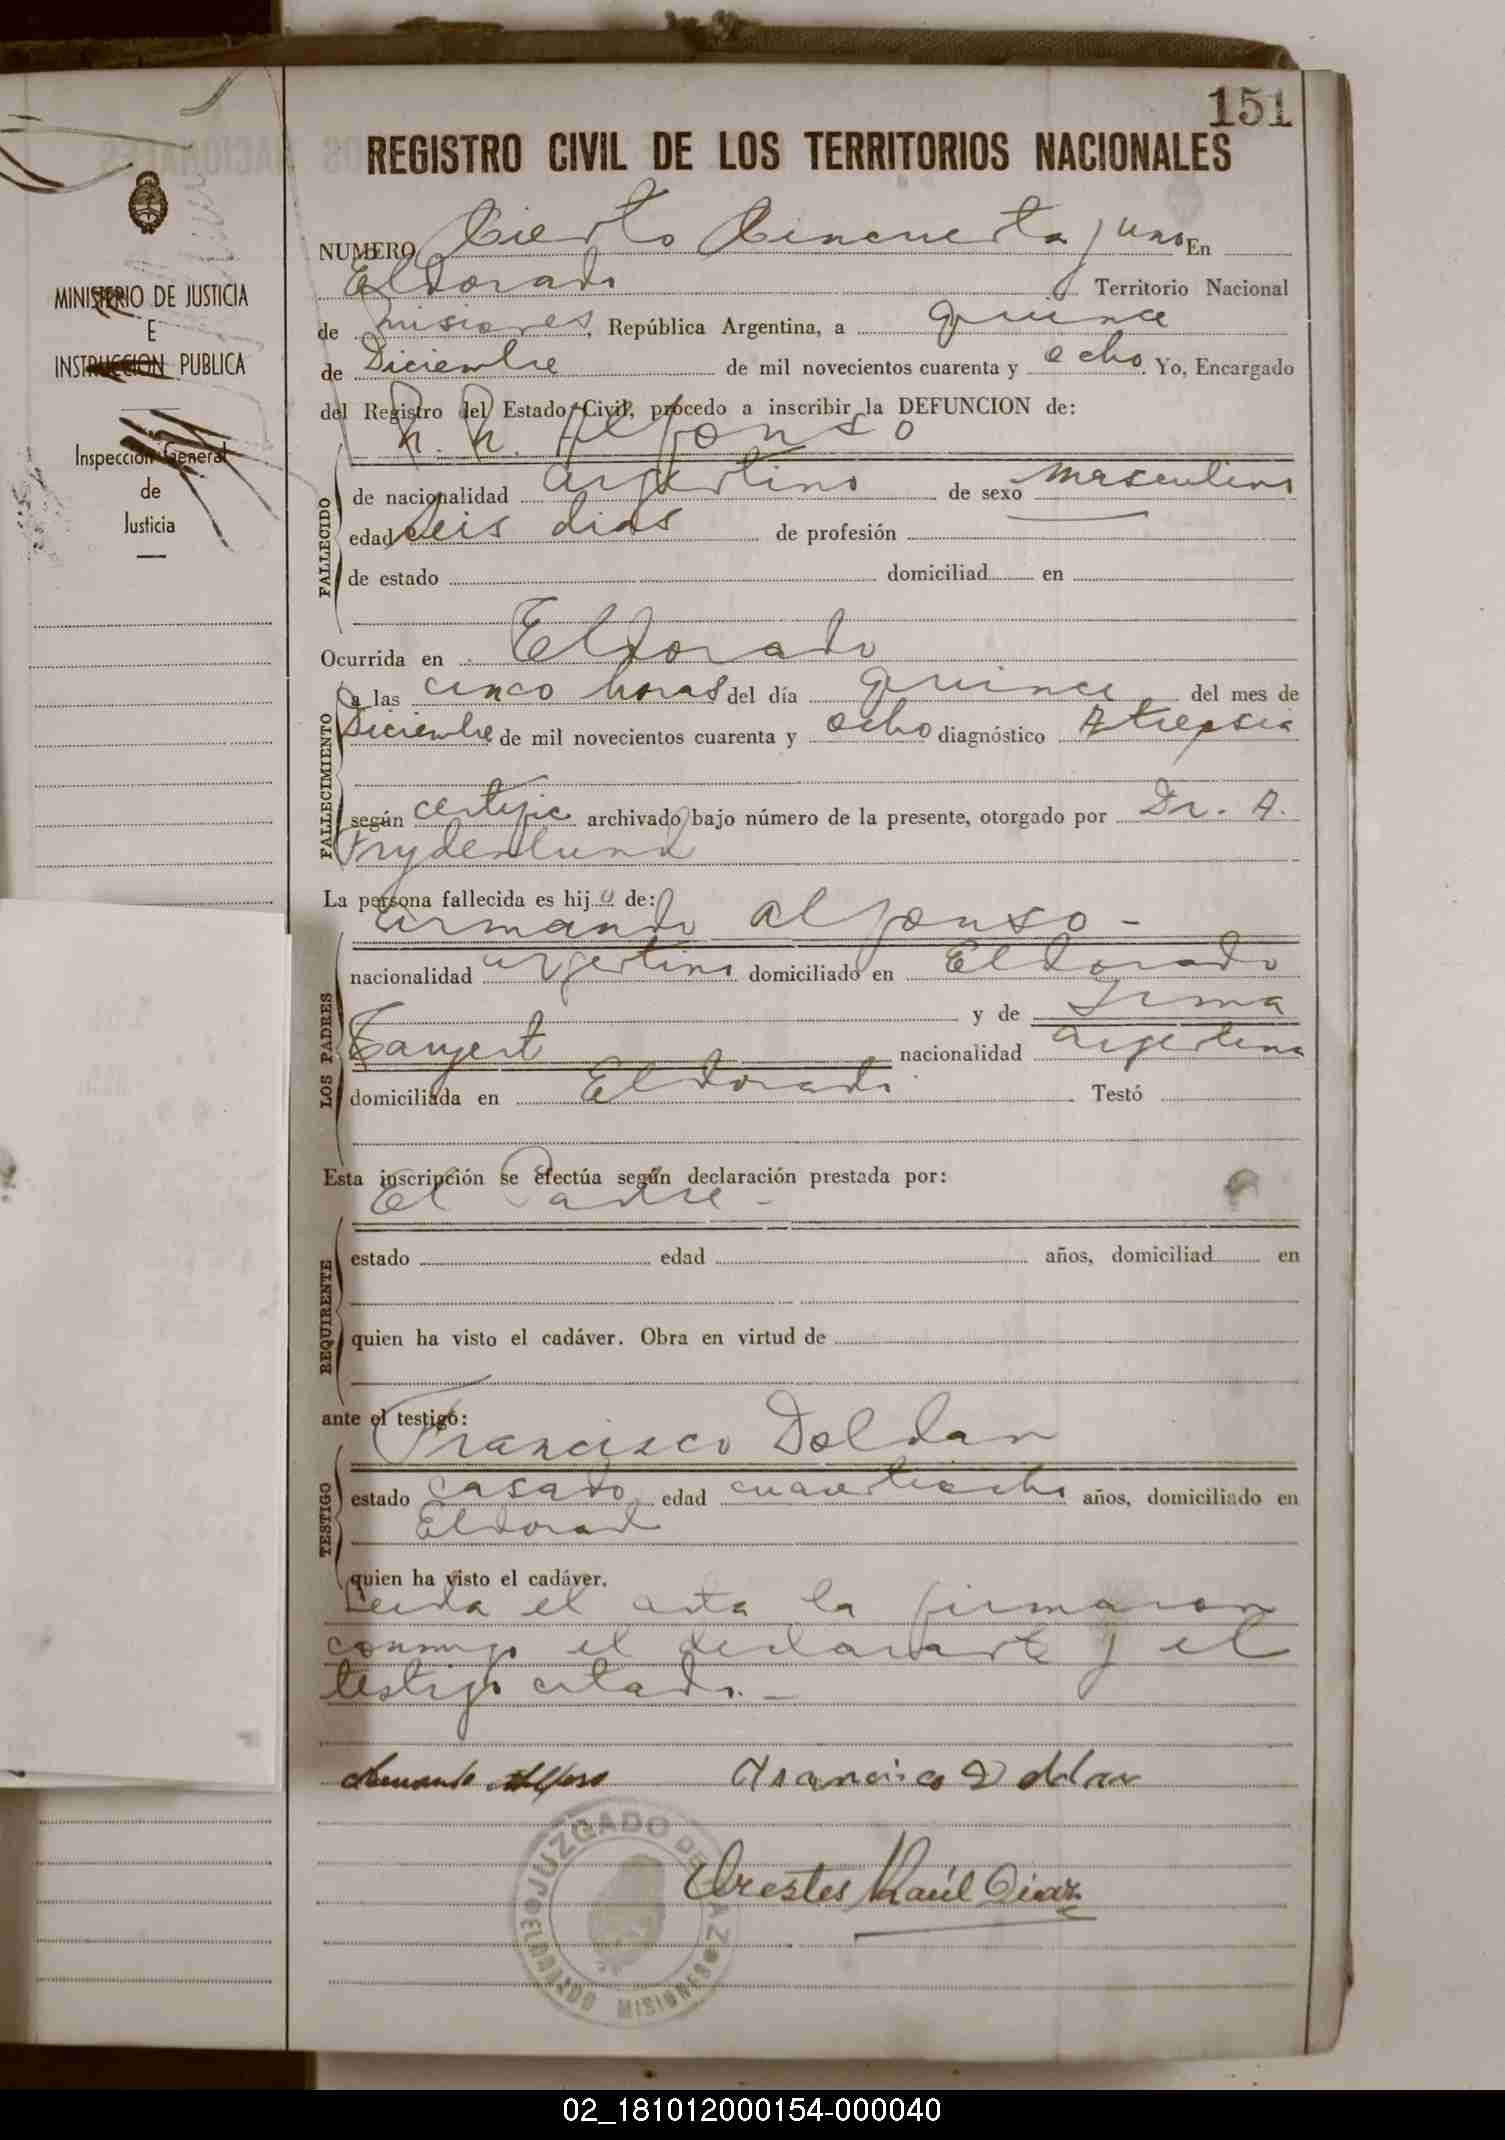 151
REGISTRO CIVIL DE LOS TERRITORIOS NACIONALES
MINISTERIO DE JUSTICIA
E
INSTRUCCION PUBLICA
Inspección General
de
Justicia
NUMERO Ciento Cincuenta y uno En
Eldorado Territorio Nacional
de Misiones, República Argentina, a quince
de Diciembre de mil novecientos cuarenta y ocho. Yo, Encargado
del Registro del Estado Civil, procedo a inscribir la DEFUNCION de:
N. N. Alfonso
FALLECIDO
de nacionalidad argentino de sexo masculino
edad seis dias de profesión
de estado domiciliad en
Ocurrida en Eldorado
FALLECIMIENTO
a las cinco horas del día quince del mes de
Diciembre de mil novecientos cuarenta y ocho diagnóstico Atrepsia
según certific archivado bajo número de la presente, otorgado por Dr. A.
Frydenlund
La persona fallecida es hijo de:
Armando Alfonso -
LOS PADRES
nacionalidad argentino domiciliado en Eldorado
y de Irma
nacionalidad argentina
domiciliada en Eldorado Testó
Esta inscripción se efectúa según declaración prestada por:
El Padre -
REQUIRENTE
estado edad años, domiciliad en
quien ha visto el cadáver. Obra en virtud de
ante el testigo:
Francisco Doldan
TESTIGO
estado casado edad cuarentiocho años, domiciliado en
Eldorado
quien ha visto el cadáver.
Leida el acta la firmaron
conmigo el declarante y el
testigo citado. -
Armando Alfonso Francisco Doldan
Orestes Raúl Diaz
JUZGADO DE PAZ
ELDORADO MISIONES
02_181012000154-000040